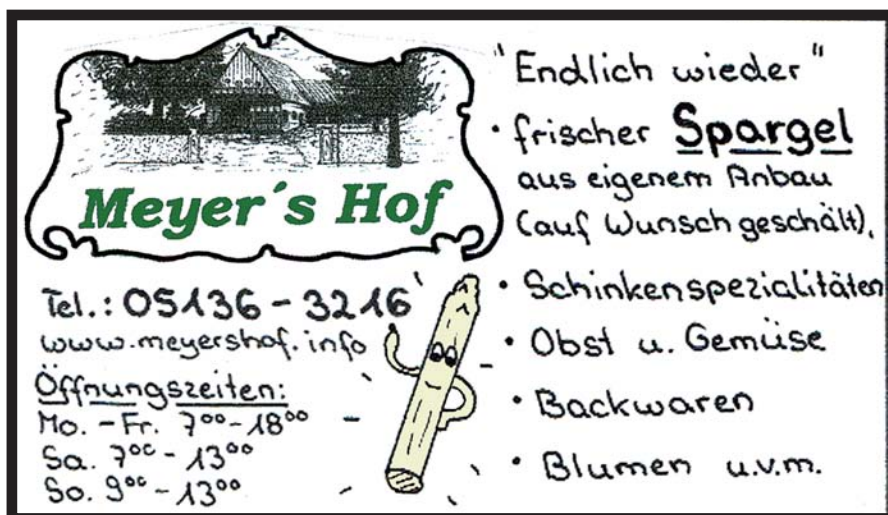 Meyer´s Hof
Tel.: 05136-3216
www.meyershof.info
Öffnungszeiten:
Mo. - Fr. 7⁰⁰-18⁰⁰
Sa. 7⁰⁰-13⁰⁰
So. 9⁰⁰-13⁰⁰
"Endlich wieder"
• frischer Spargel
aus eigenem Anbau
(auf Wunsch geschält),
• Schinkenspezialitäten
• Obst u. Gemüse
• Backwaren
• Blumen u.v.m.